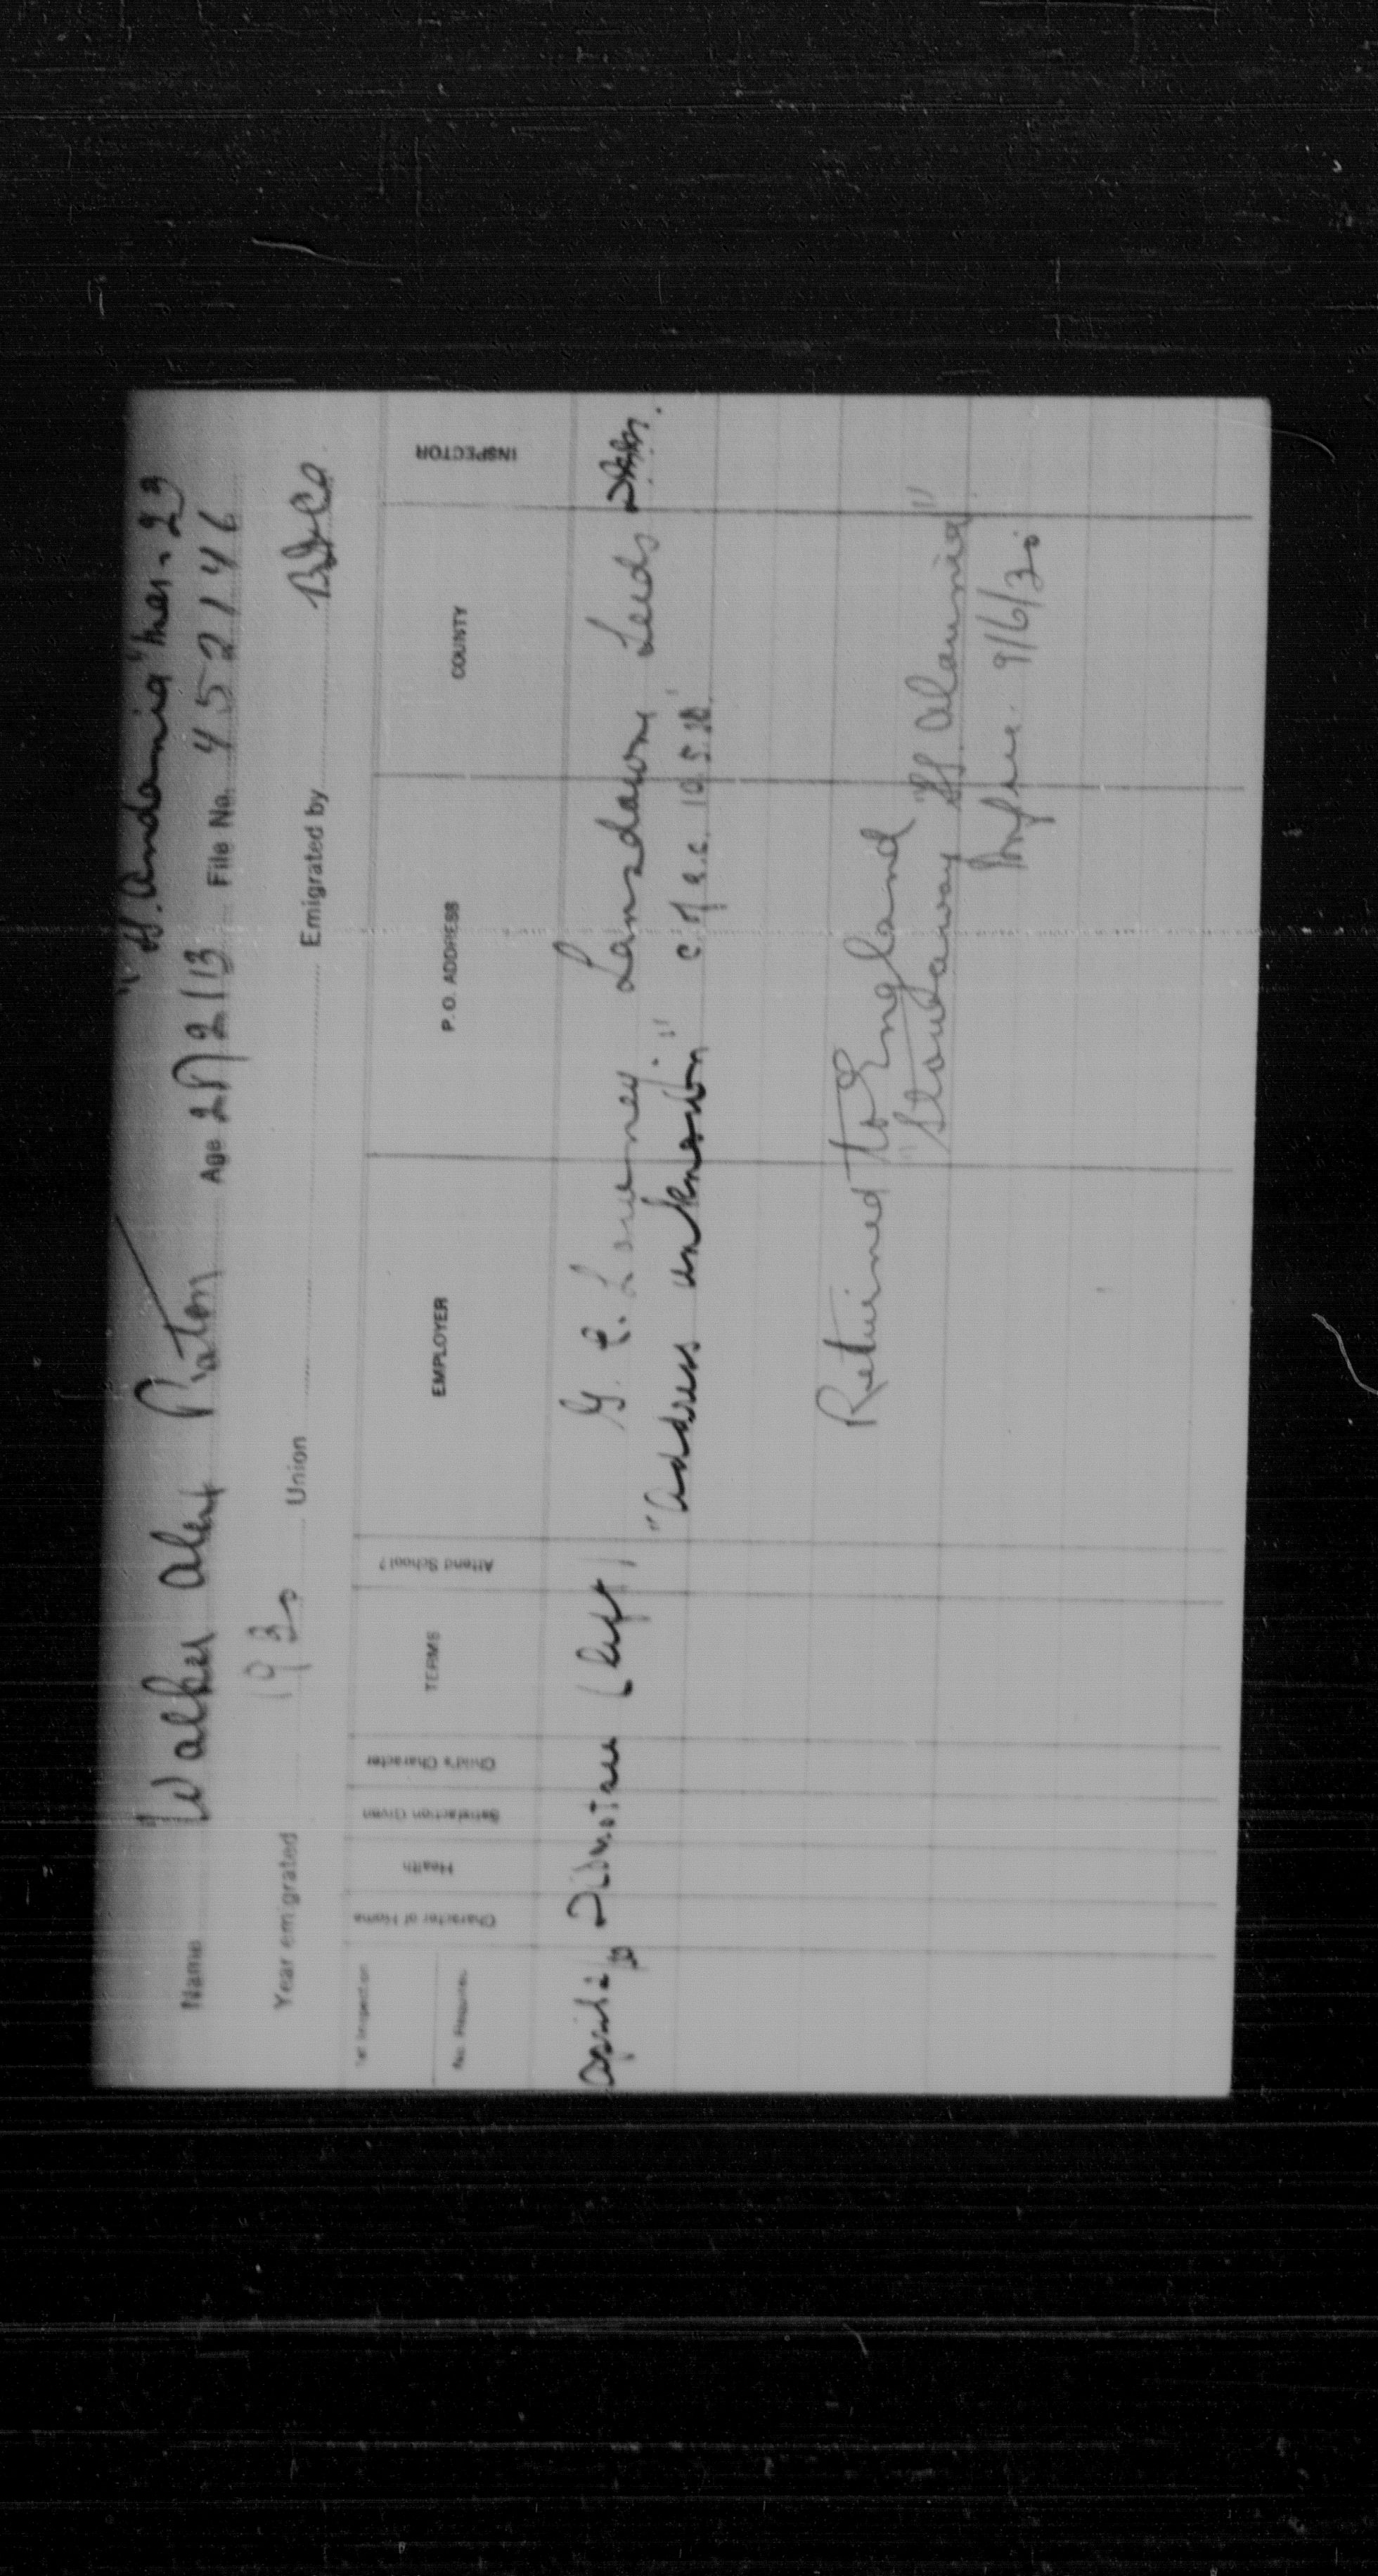 "SS. Andania" Mar. 29
Name Walker Albert Paton Age 27/2/13 File No. 452146
Year emigrated 1930 Union Emigrated by
1st Inspection No. Required Character of Home Health Satisfaction Given Child's Character TERMS Attend School? EMPLOYER P.O. ADDRESS COUNTY INSPECTOR
April (left) G. E. Lowney Lansdown Leeds
"Address unknown" C. of A.C. 10.5.30
Returned to England
"Stowaway SS. Alaunia"
9/6/30